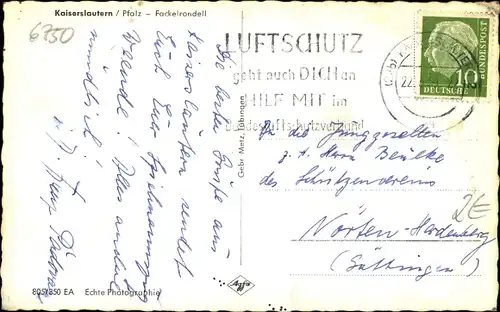 6750
Kaiserslautern / Pfalz – Fackelrondell
LUFTSCHUTZ
geht auch DICH an
HILF MIT im
Bundesluftschutzverband
10
DEUTSCHE BUNDESPOST
22.
Die besten Grüße aus
Kaiserslautern sendet
Euch Euer
Freunde! Alles andere
mündlich!
Gebr. Metz, Tübingen
An die Junggesellen
z. H. Herrn Beulke
des Schützenvereins
Nörten-Hardenberg
(Göttingen)
2€
Agfa
805/350 EA Echte Photographie